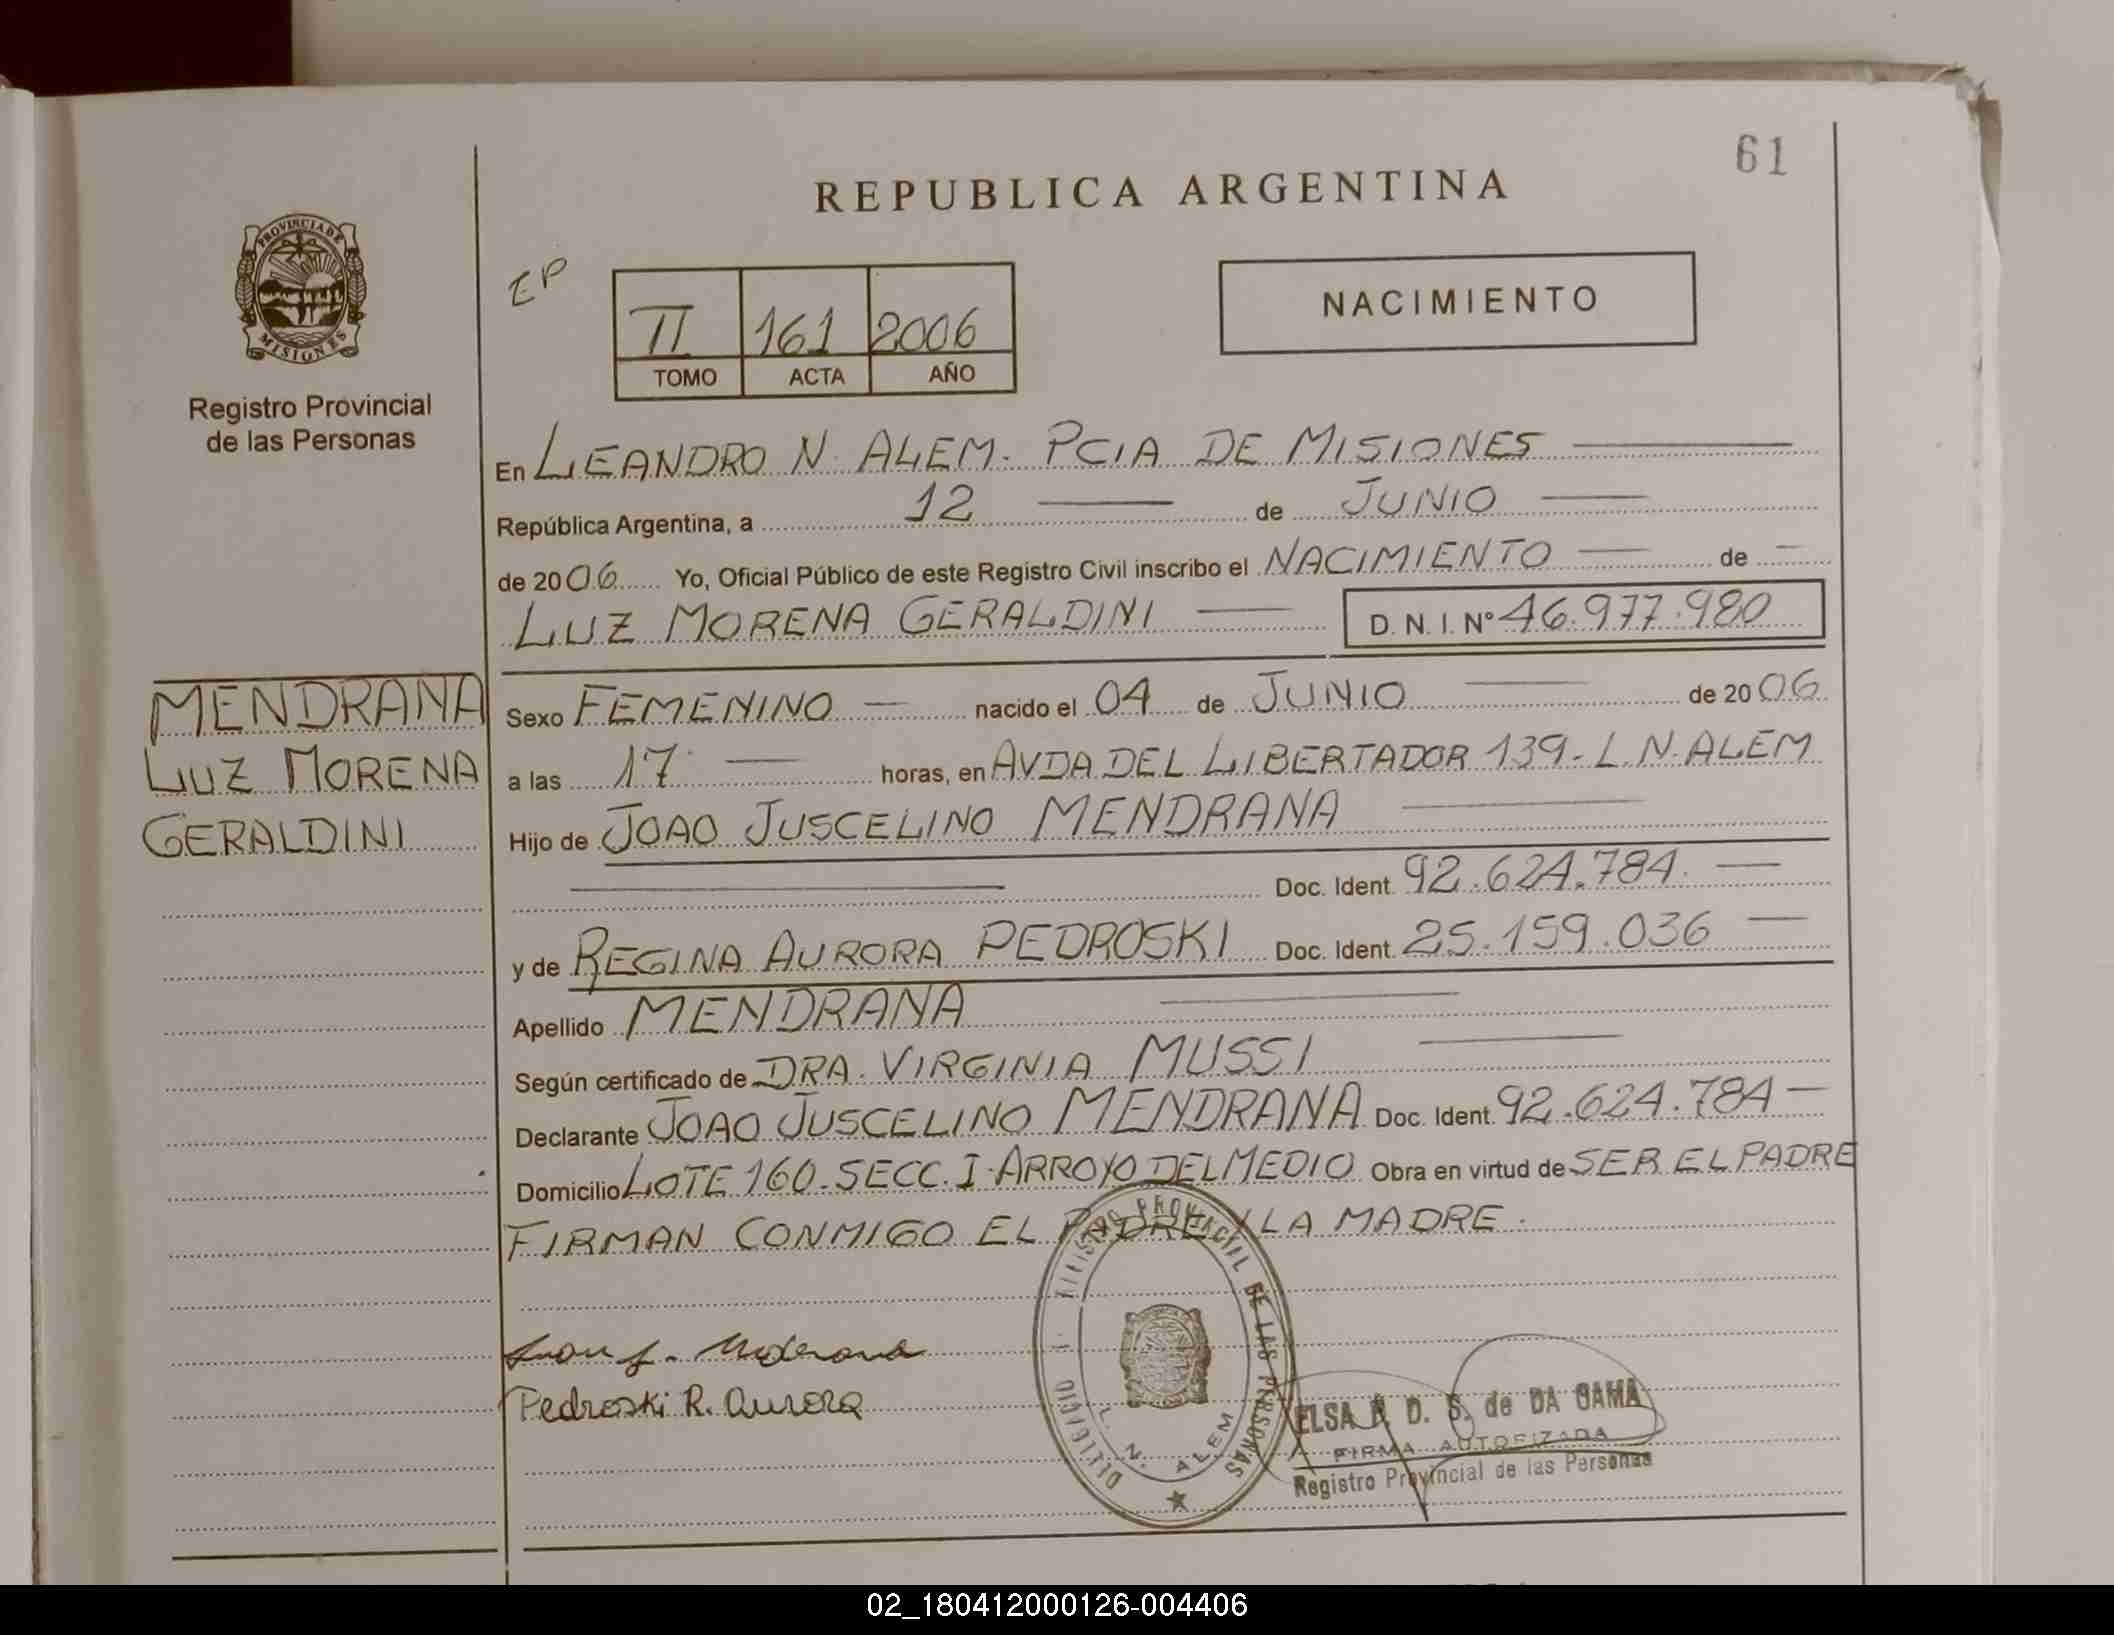 61
REPUBLICA ARGENTINA
PROVINCIA DE
MISIONES
Registro Provincial
de las Personas
EP
II 161 2006
TOMO ACTA AÑO
NACIMIENTO
En LEANDRO N. ALEM. PCIA DE MISIONES
República Argentina, a 12 de JUNIO
de 2006 Yo, Oficial Público de este Registro Civil inscribo el NACIMIENTO de
LUZ MORENA GERALDINI D. N. I. Nº 46.977.980
MENDRANA
LUZ MORENA
GERALDINI
Sexo FEMENINO nacido el 04 de JUNIO de 2006
a las 17 horas, en AVDA DEL LIBERTADOR 139-L.N.ALEM
Hijo de JOAO JUSCELINO MENDRANA
Doc. Ident. 92.624.784.
y de REGINA AURORA PEDROSKI Doc. Ident. 25.159.036
Apellido MENDRANA
Según certificado de DRA. VIRGINIA MUSSI
Declarante JOAO JUSCELINO MENDRANA Doc. Ident. 92.624.784
Domicilio LOTE 160-SECC.I-ARROYO DEL MEDIO Obra en virtud de SER EL PADRE
FIRMAN CONMIGO EL PADRE Y LA MADRE.
Pedroski R. Aurora
REGISTRO PROVINCIAL DE LAS PERSONAS
L. N. ALEM
ELSA A. D. S. de DA GAMA
FIRMA AUTORIZADA
Registro Provincial de las Personas
02_180412000126-004406